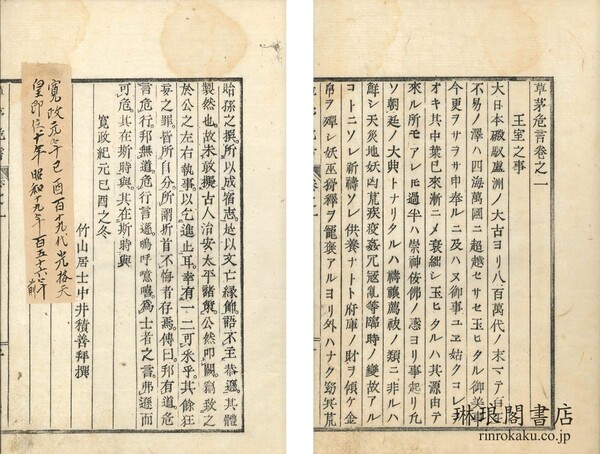 草茅危言卷之一
王室之事
大日本磤馭盧洲ノ大古ヨリ八百萬代ノ末マテ百王
不易ノ澤ハ四海萬國ニ超越セサセ玉ヒタル御美事
今更ヲサヲサ申奉ルニ及ハヌ御事ユヱ姑クコレヲ
オキ其中葉巳來漸ニメ衰絀シ玉ヒタルハ其源由テ
來ル所モアレ𪜈過半ハ崇神佞佛ノ惑ヨリ事起リ凡
ソ朝廷ノ大典トナリタルハ禱禳薦祓ノ類ニ非ルハ
鮮シ天災地妖凶荒疾疫姦冗冦亂等臨時ノ變故アル
コトニソレ祈禱ソレ供養ナトト府庫ノ財ヲ傾ケ金
帛ヲ殫シ妖巫猾釋ヲ寵褒アルヨリ外ハナク窮冥荒
貽孫之擬所以成宿志是以文亡緣飾語不主恭遜其體
製然也故未敢擬古人治安太平諸策公然叩關竊致之
於公之左右執事以乞進止耳幸有一二可采乎其餘狂
妄之罪皆所自分所謂折首不悔者存焉傳曰邦有道危
言危行邦無道危行言遜嗚呼噫嘻爲士者之言弗遜而
可危其在斯時與其在斯時與
寛政紀元己酉之冬
竹山居士中井積善拜撰
寛政元年己酉百十九代光格天
皇即位十年昭和十九年百五十六年前
琳琅閣書店
rinrokaku.co.jp